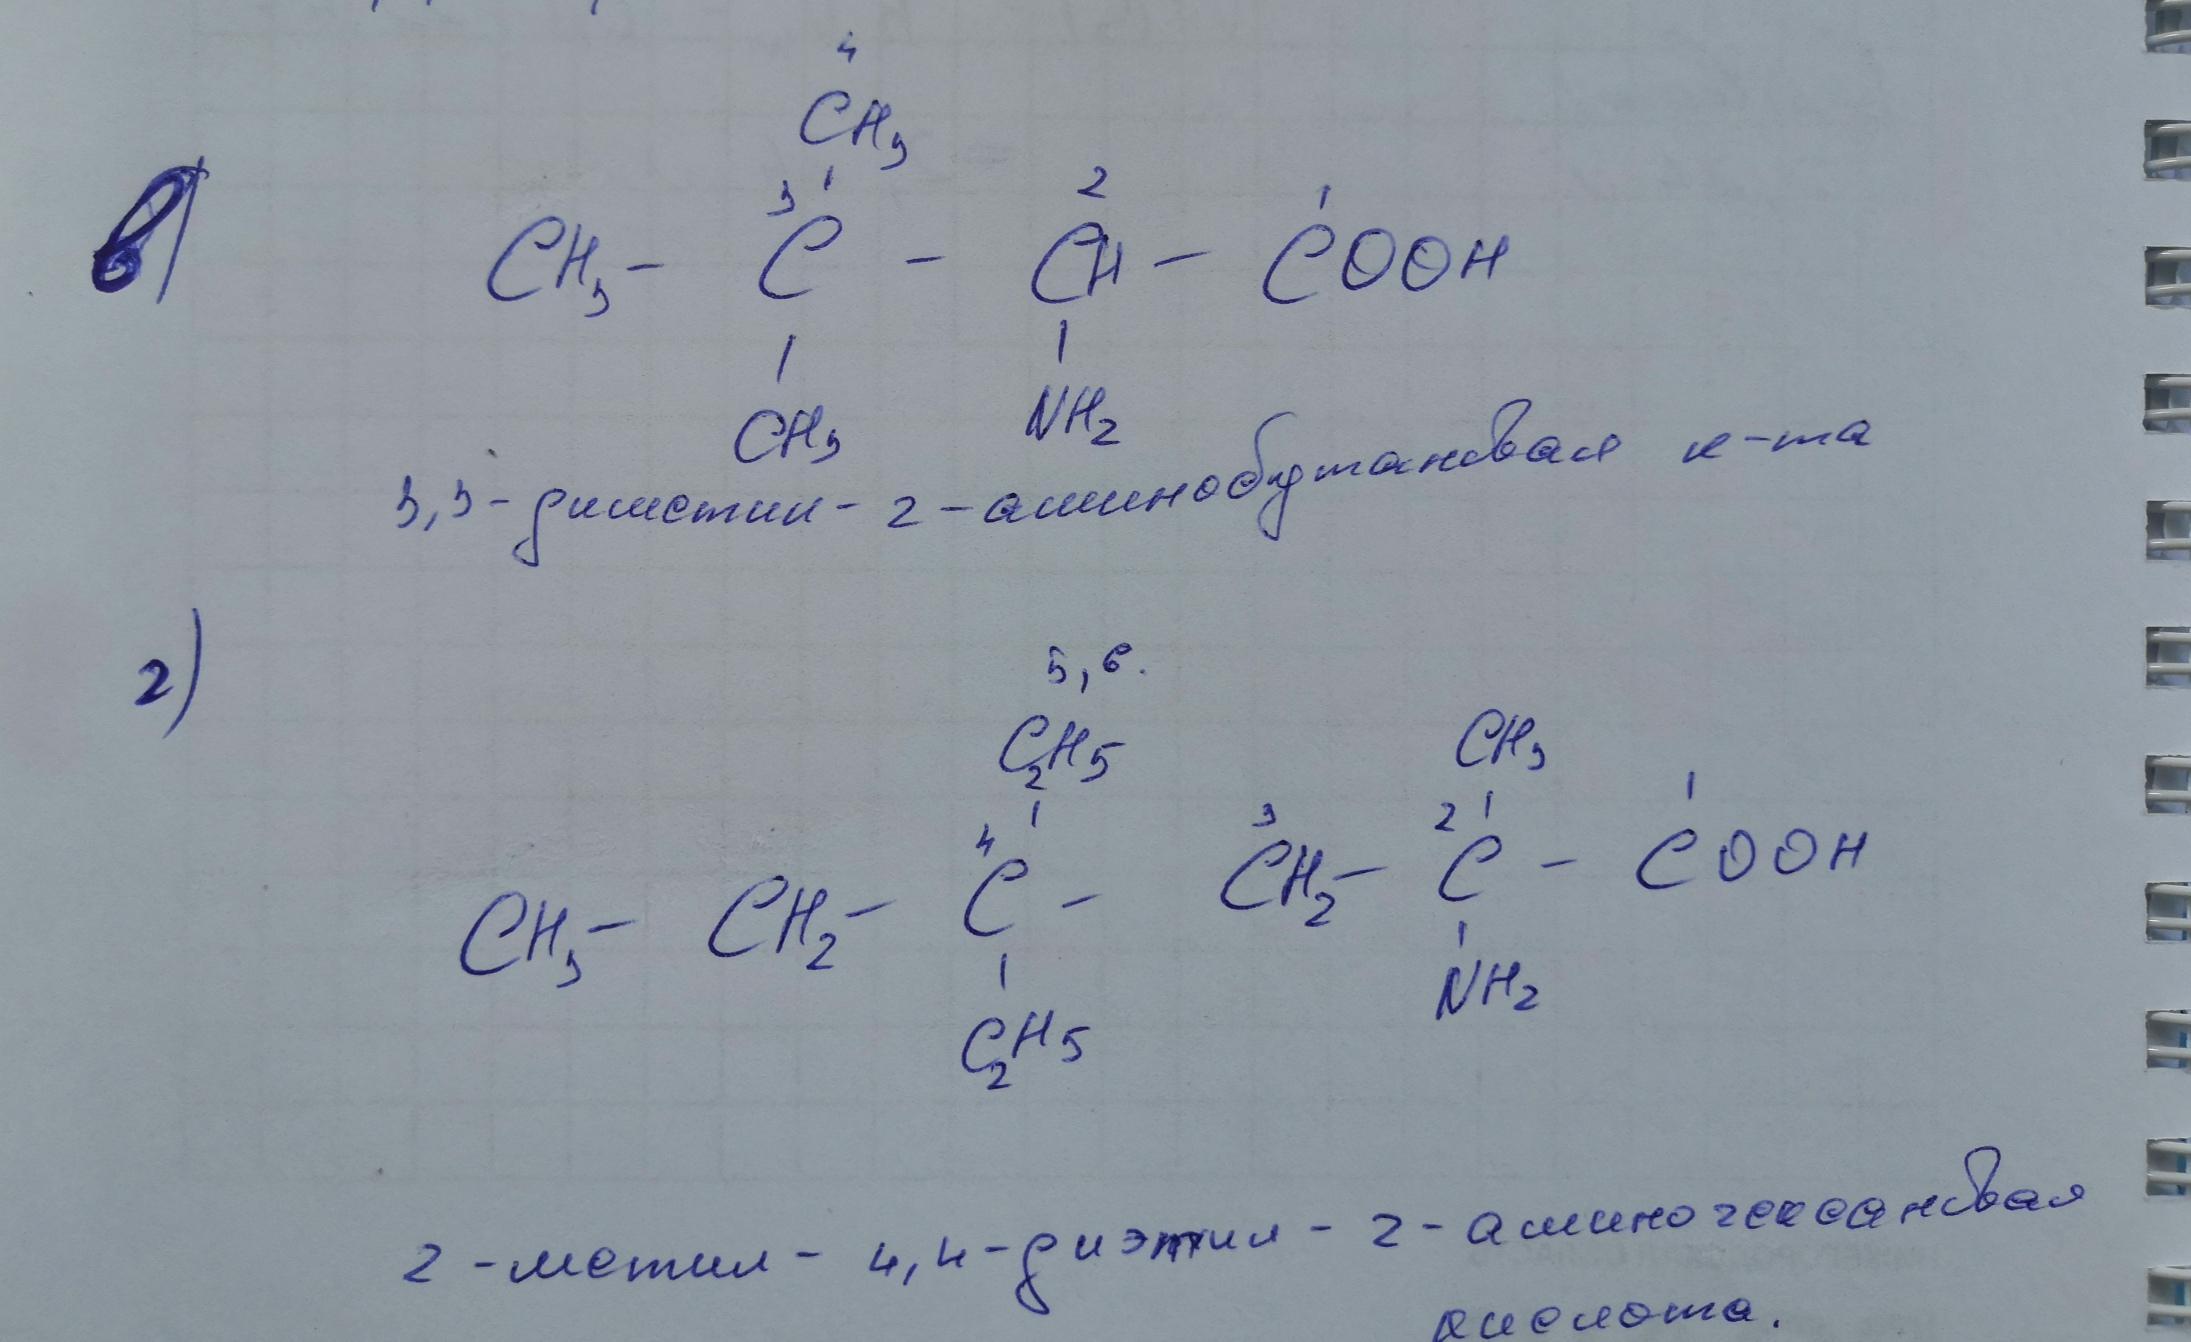 4
CH3
3 2 1
в) CH3 - C - CH - COOH
CH3 NH2
3,3-диметил-2-аминобутановая к-та
5,6.
г)
C2H5 CH3
4 3 2 1
CH3 - CH2 - C - CH2 - C - COOH
C2H5 NH2
2-метил-4,4-диэтил-2-аминогексановая
кислота.